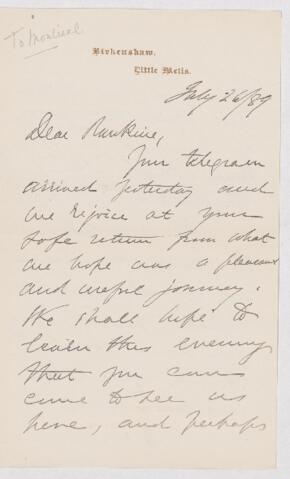 To Montreal
Birkenshaw.
Little Metis.
July 26/89
Dear Rankine,
Your telegram
arrived yesterday and
we rejoice at your
safe return from what
we hope was a pleasant
and useful journey.
We shall hope to
learn this evening
that you can
come to see us
here, and perhaps